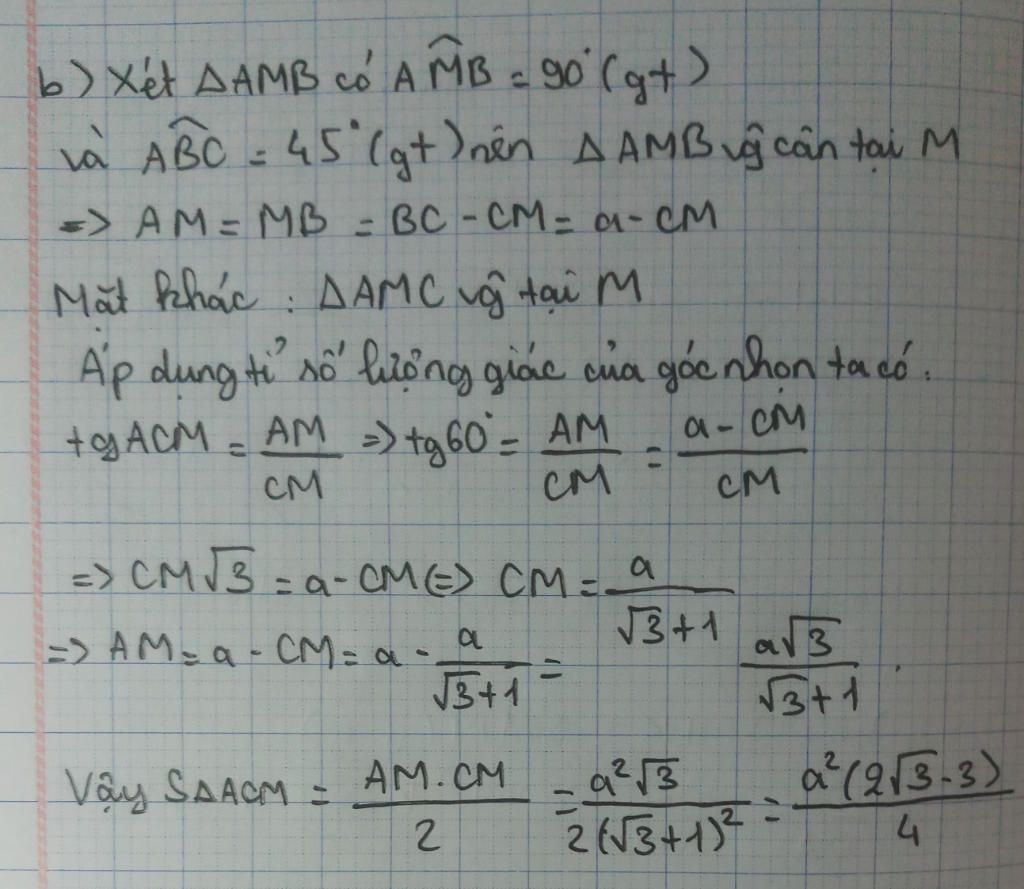 b) Xét ΔAMB có AM̂B = 90° (gt)
và AB̂C = 45° (gt) nên ΔAMB vg cân tại M
=> AM = MB = BC - CM = a - CM
Mặt khác : ΔAMC vg tại M
Áp dụng tỉ số lượng giác của góc nhọn ta có :
tgACM = AM/CM => tg60° = AM/CM = (a - CM)/CM
=> CM√3 = a - CM <=> CM = a/(√3+1)
=> AM = a - CM = a - a/(√3+1) = a√3/(√3+1) .
Vậy SΔACM = AM.CM/2 = a²√3/2(√3+1)² = a²(2√3-3)/4